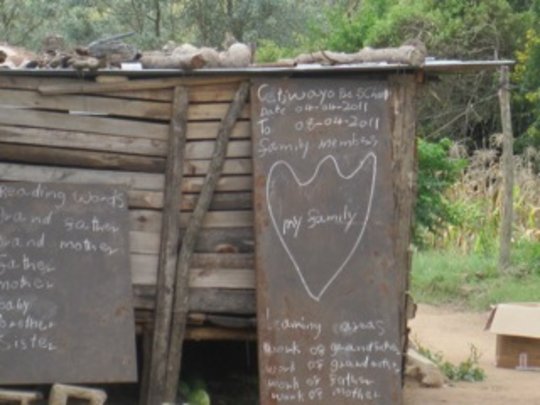 Reading Words
Grand Father
Grand mother
Father
mother
baby
Brother
Sister
Date 04-04-2011
To 08-04-2011
Family members
my family
Learning areas
work of grandfather
work of grandmother
work of Father
work of mother